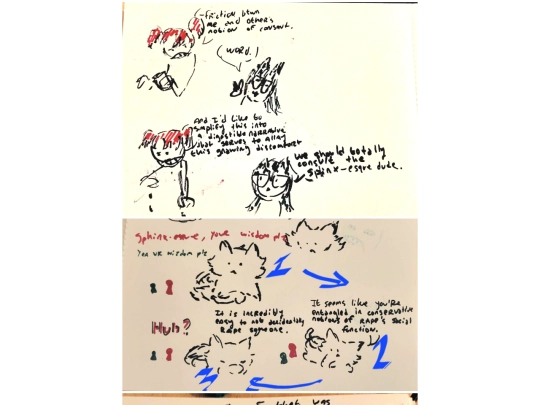 -friction btwn
me and other's
notion of consent.
(WORD.)
And I'd like to
simplify this into
a digestible narrative
that serves to allay
this gnawing discomfort
We should totally
consult the
Sphinx-esque dude.
Sphinx-esque, your wisdom plz
Yea ur wisdom plz
1
It seems like you're
entangled in conservative
notions of rape's social
function.
2
Huh?
It is incredibly
easy to
rape someone.
3